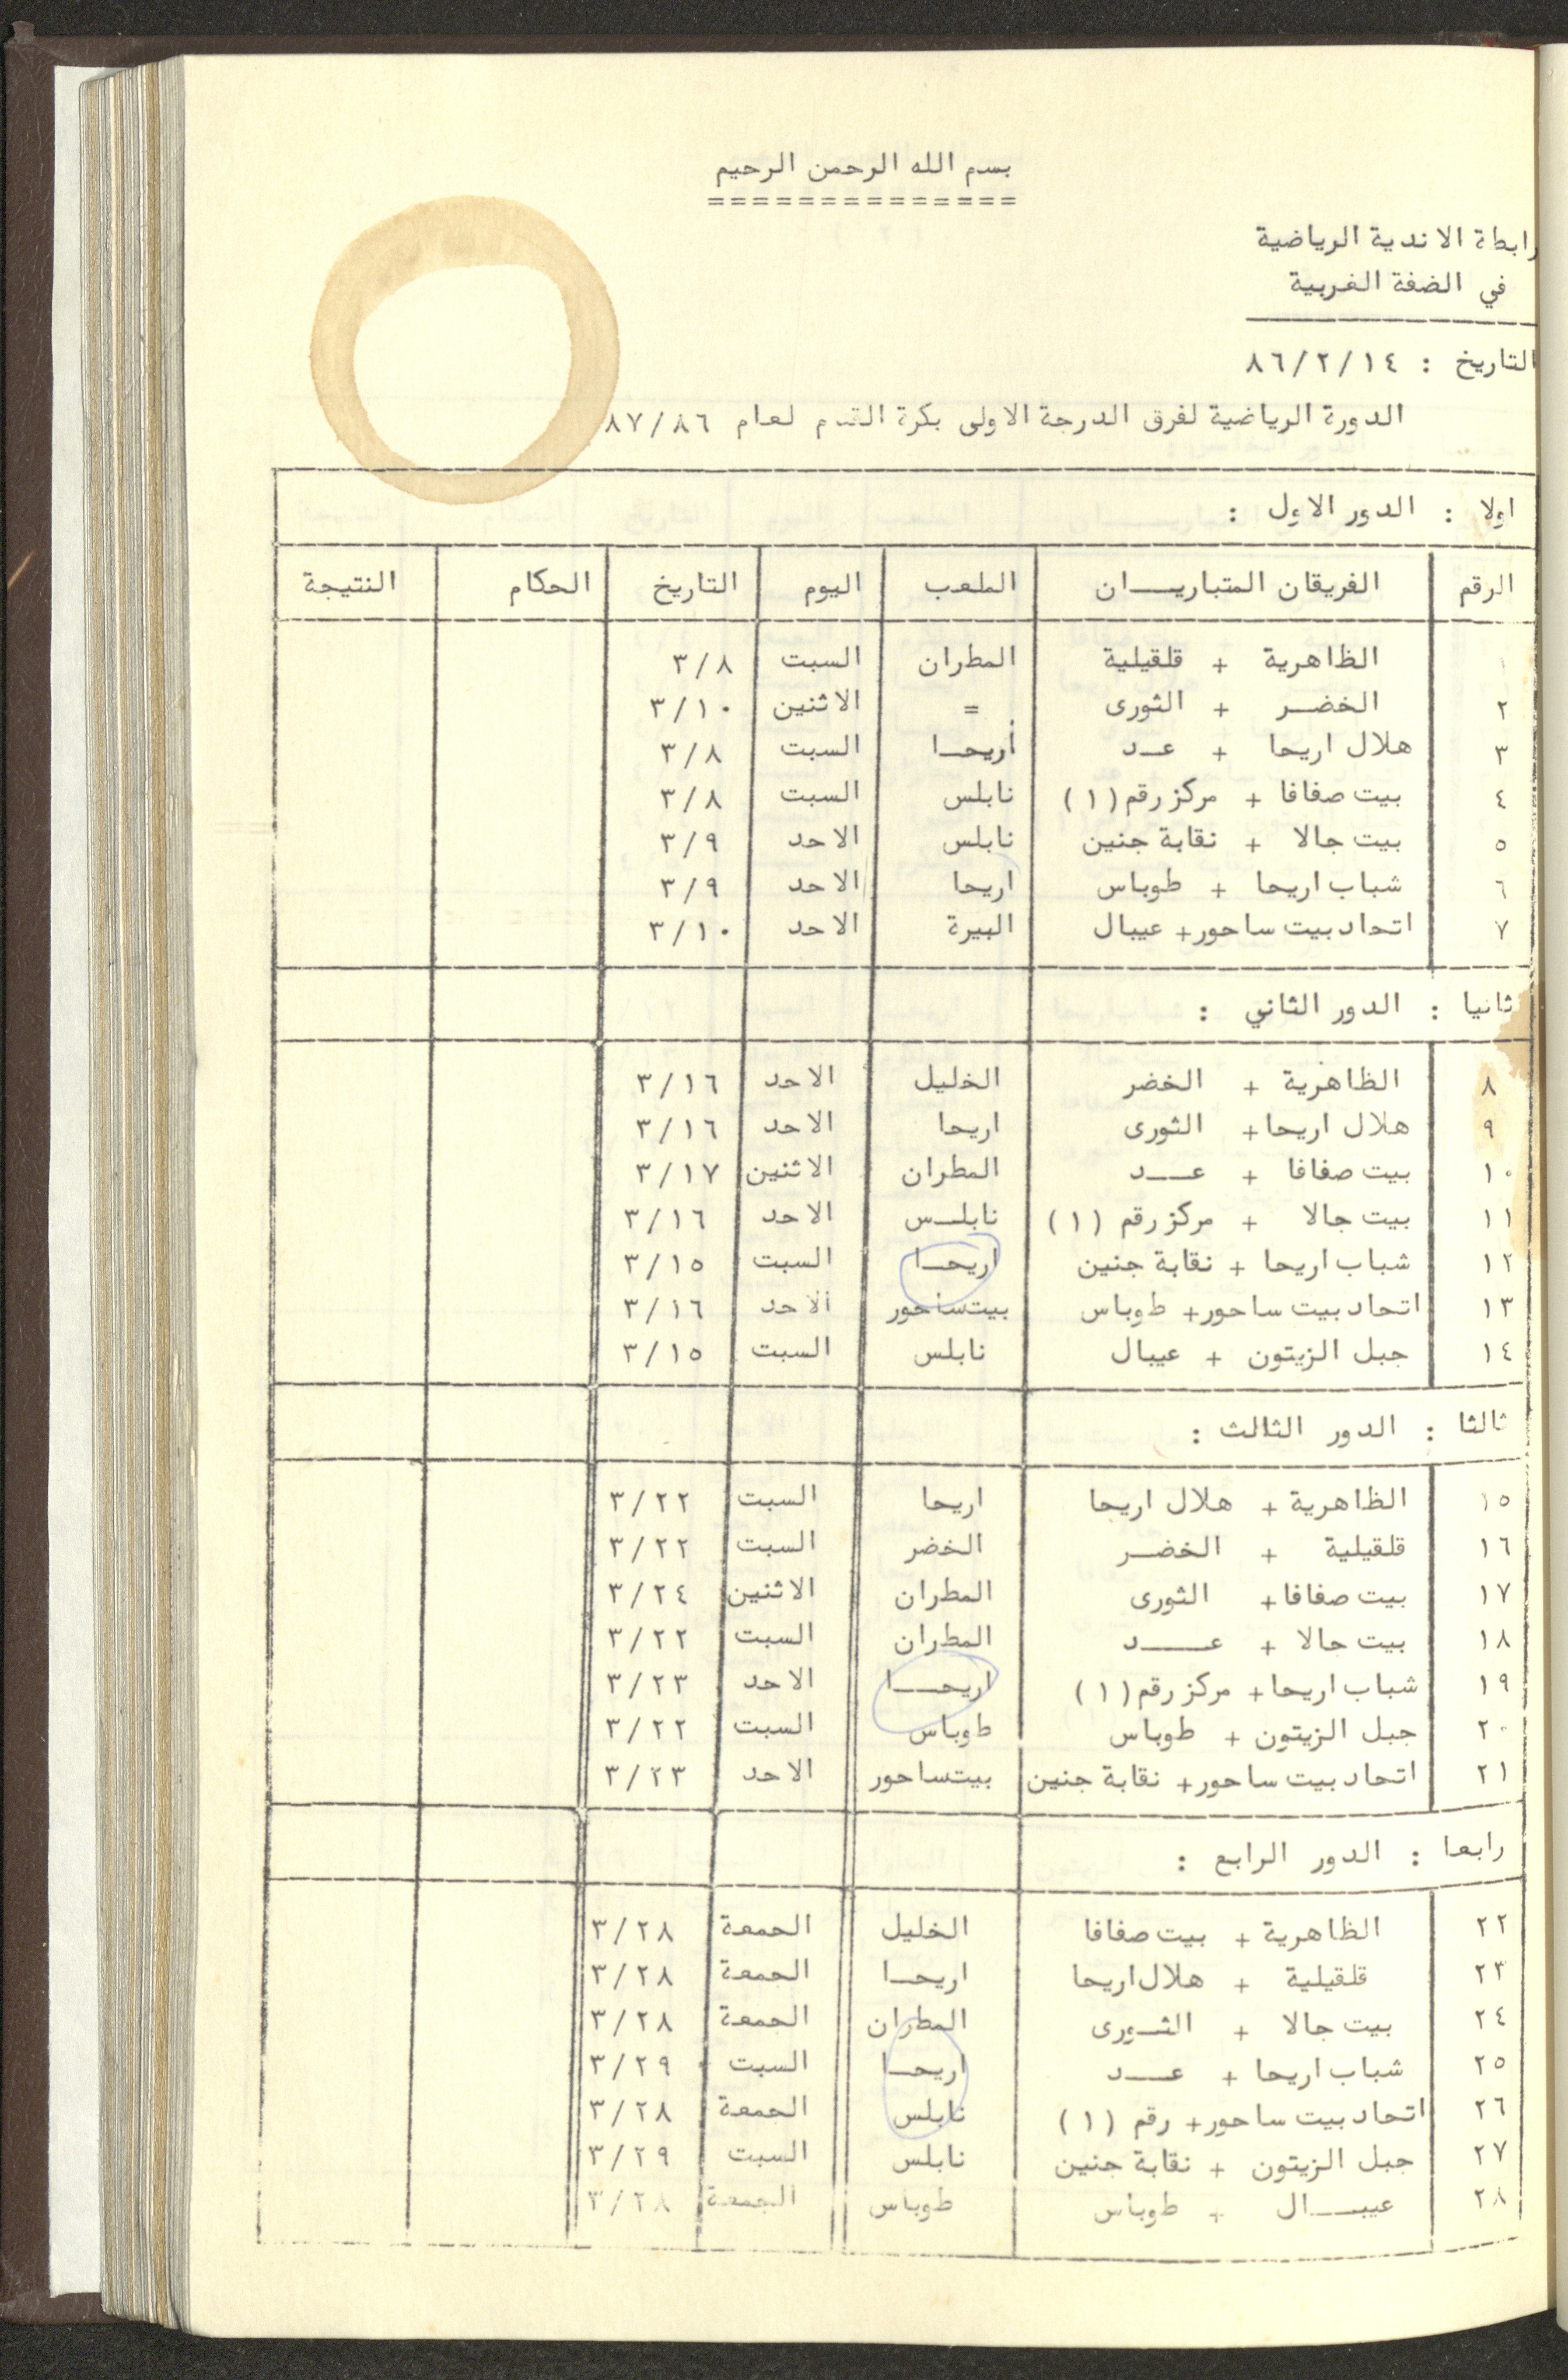 بسم الله الرحمن الرحيم
==============
رابطة الاندية الرياضية
في الضفة الغربية
التاريخ : ٨٦/٢/١٤
الدورة الرياضية لفرق الدرجة الاولى بكرة القدم لعام ٨٧/٨٦
اولا : الدور الاول :
الرقم الفريقان المتباريـــان الملعب اليوم التاريخ الحكام النتيجة
١ الظاهرية + قلقيلية المطران السبت ٣/٨
٢ الخضــر + الثورى = الاثنين ٣/١٠
٣ هلال اريحا + عــد أريحــا السبت ٣/٨
٤ بيت صفافا + مركز رقم (١) نابلس السبت ٣/٨
٥ بيت جالا + نقابة جنين نابلس الاحد ٣/٩
٦ شباب اريحا + طوباس اريحا الاحد ٣/٩
٧ اتحاد بيت ساحور + عيبال البيرة الاحد ٣/١٠
ثانيا : الدور الثاني :
٨ الظاهرية + الخضر الخليل الاحد ٣/١٦
٩ هلال اريحا + الثورى اريحا الاحد ٣/١٦
١٠ بيت صفافا + عـــد المطران الاثنين ٣/١٧
١١ بيت جالا + مركز رقم (١) نابلــس الاحد ٣/١٦
١٢ شباب اريحا + نقابة جنين اريحــا السبت ٣/١٥
١٣ اتحاد بيت ساحور + طوباس بيت ساحور الاحد ٣/١٦
١٤ جبل الزيتون + عيبال نابلس السبت ٣/١٥
ثالثا : الدور الثالث :
١٥ الظاهرية + هلال اريحا اريحا السبت ٣/٢٢
١٦ قلقيلية + الخضــر الخضر السبت ٣/٢٢
١٧ بيت صفافا + الثورى المطران الاثنين ٣/٢٤
١٨ بيت جالا + عــــد المطران السبت ٣/٢٢
١٩ شباب اريحا + مركز رقم (١) اريحـــا الاحد ٣/٢٣
٢٠ جبل الزيتون + طوباس طوباس السبت ٣/٢٢
٢١ اتحاد بيت ساحور + نقابة جنين بيت ساحور الاحد ٣/٢٣
رابعا : الدور الرابع :
٢٢ الظاهرية + بيت صفافا الخليل الجمعة ٣/٢٨
٢٣ قلقيلية + هلال اريحا اريحــا الجمعة ٣/٢٨
٢٤ بيت جالا + الثــورى المطران الجمعة ٣/٢٨
٢٥ شباب اريحا + عـــد اريحــا السبت ٣/٢٩
٢٦ اتحاد بيت ساحور + رقم (١) نابلس الجمعة ٣/٢٨
٢٧ جبل الزيتون + نقابة جنين نابلس السبت ٣/٢٩
٢٨ عيبـــال + طوباس طوباس الجمعة ٣/٢٨